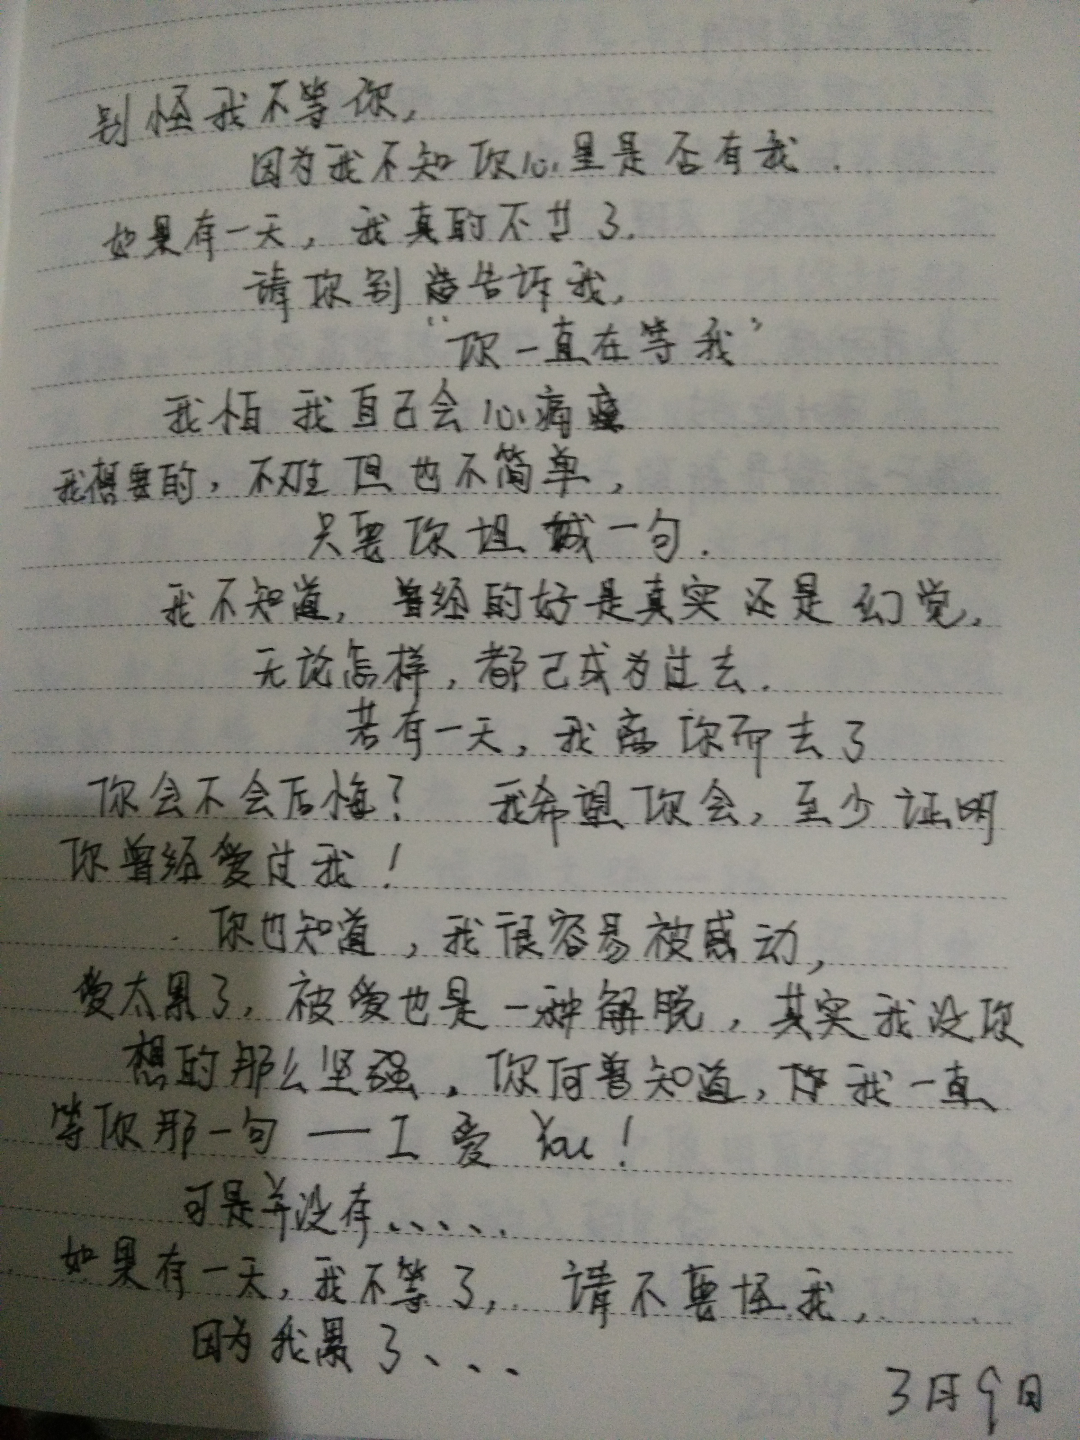 别怪我不等你,
因为我不知你心里是否有我.
如果有一天, 我真的不廿了.
请你别 告诉我,
“你一直在等我”
我怕 我自己会心痛
我想要的, 不难 但也不简单,
只要你坦 诚一句.
我不知道, 曾经的好是真实还是幻觉,
无论怎样, 都已成为过去.
若有一天, 我离你而去了
你会不会后悔? 我希望你会, 至少证明
你曾经爱过我!
你也知道, 我很容易被感动,
爱太累了, 被爱也是一种解脱, 其实我没你
想的那么坚强, 你何曾知道, 我一直
等你那一句 — I 爱 You!
可是并没有、、、、、
如果有一天, 我不等了, 请不要怪我,
因为我累了、、、
3月9日